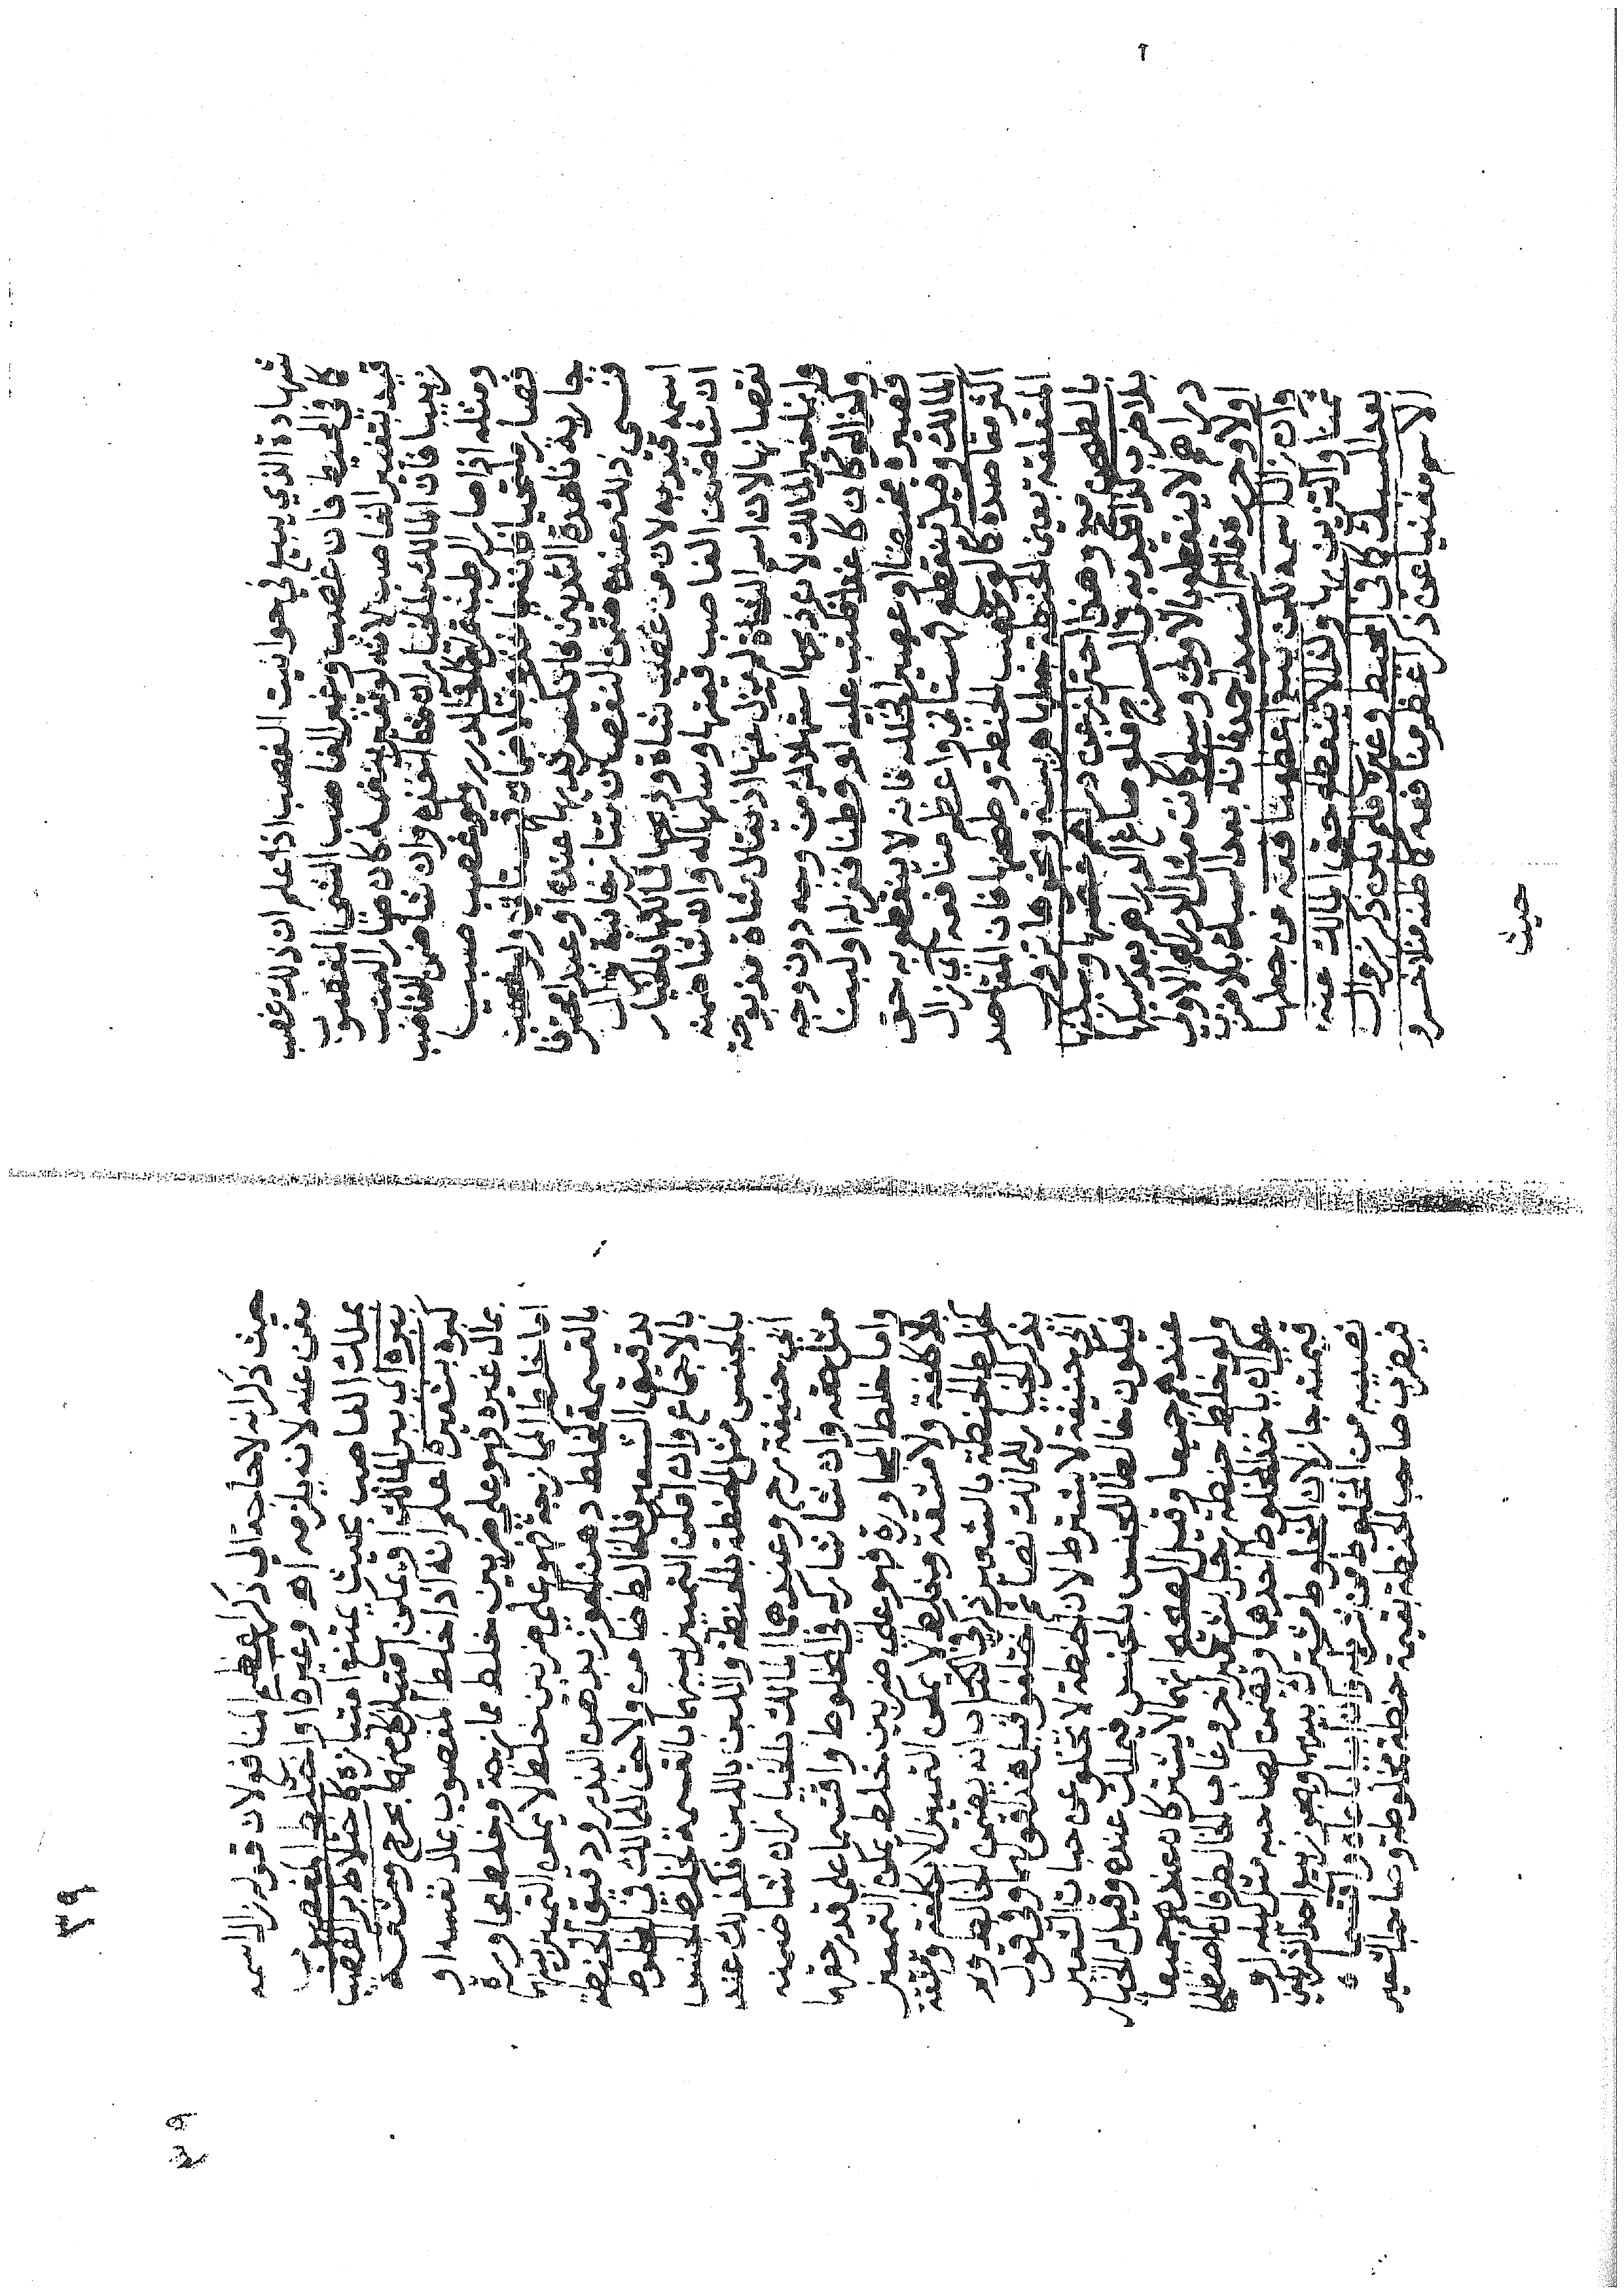 شهادة الذي يبيع في حوانيت الغصب اذا علم ان ذلك غصب
كما في المحيط فان غصب وغير الغاصب الشئ المغصوب
قيد بتغيير الغاصب لانه لو تغير بنفسه كان صار العنب
زبيبا فان المالك بالخيار ان شا اخذه وان شا ضمن الغاصب
ومثله اذا صار الرطب تمرا كما في الدرر ولو غصب صبيا
فصار ملتحيا عنده اخذه بلا ضمان قهستاني ولو غصب
جارية ناهدة الثديين فانكسر ثديها عنده او عبدا محترفا
فنسي ذلك عنده ضمن النقصان تتارخانية فزال
اسمه قيد به لان من غصب شاة وذبحها لمالكها بالخيار
ان شا ضمن الغاصب قيمتها وسلمها له وان شا ضمنه
نقصانها لان اسم الشاة لم يزل عنها اذ يقال شاة مذبوحة
وانما خير المالك لان ذبحها استهلاك من وجه دون وجه
وكذا لو كان كاغدا فكتب عليه او قطنا فغزله او لبنا
فصيره مخيضا او عصيرا فخلله فانه لا ينقطع به حق
المالك وقيل تنقطع قهستاني واعظم منافعه اي زال
اكثر مقاصده كالو غصب الحنطة وطحنها فان المقاصد
المتعلقة بعين الحنطة جعلها هريسة ونحوها تزول
بالطحن منح وهذا احتراز عن دراهم غصبها وسبكها
بلا ضرب كذا قيد به في السراج فلو صاغ الدراهم بعد سبكها
دراهم لا ينقطع بالاولى وسواء كانت مثل الدراهم الاول
اولا وحرره قاله السيد احمد فانه بعد السبك بلا ضرب
وان زال اسمه لكن يبقى اعظم منافعه من جعلها
ثمنا والتزين بها ولذا لا تنقطع حق المالك عنه
بعد السبك كما في المحيط وغيره فلم يكن ذكر زوال
الاسم مغنيا عن ذكر اعظم منافعه كما ظنه منلا خسرو
حيث
٣٩
حيث ذكر انه لا حاجة الى ذكر اعظم المنافع لان قوله زال اسمه
مغن عنه لانه يلزمه اهـ وغيره او اختلط المغصوب
بملك الغاصب بحيث يمتنع امتيازه كاختلاط بر الغصب
ببره اي ببر المالك او يمكن امتيازهما بحرج ومشقة
كبره بشعيره اعلم انه اذا خلط المغصوب بمال نفسه او
بمال غيره فهو على ضربين خلط ممازجة وخلط مجاورة
اما خلط الممازجة فهو على ضربين خلط لا يمكن التمييز بينهما
بالقسمة كخلط دهن الجوز بدهن البذر ودقيق الحنطة
بدقيق الشعير فالخالط ضامن ولا حق للمالك في المخلوط
بالاجماع وان امكن التمييز بينهما بالقسمة كخلط الجنس
بالجنس مثل الحنطة بالحنطة واللبن باللبن فكذلك عند
ابي حنيفة رح وعندهما المالك بالخيار ان شا ضمنه
مثل حقه وان شا شاركه في المخلوط واقتسما على قدر حقهما
واما خلط المجاورة فهو على ضربين خلط يمكن التمييز
بلا كلفة ولا مشقة وخلط لا يمكن التمييز الا بكلفة ومشقة
كخلط الحنطة بالشعير ذكر في الكتاب انه يضمن الخالط ولم
يذكر الخيار للمالك نصا ثم اختلفوا قيل هذا قولهما وفي قول
ابي حنيفة لا يشترط لان الحنطة لا تخلو عن حبات الشعير
فيكون خالطا للجنس بالجنس فيملك عنده وقيل له الخيار
عندهم جميعا وقيل الصحيح انهما لا يشتركان عندهم جميعا
ولو خلط حنطة رجل بشعير اخر وغاب الخالط فان اصطلحا
على ان ياخذ المخلوط احدهما ويضمن لصاحبه مثل كيله او
قيمته جاز لان المخلوط مشترك بينهما وجوز بيع احد الشريكين
نصيبه من المخلوط من شريكه وان ابيا باعاه واقتسما
فيضرب صاحب الحنطة بقيمة حنطة مخلوطة وصاحب الشعير